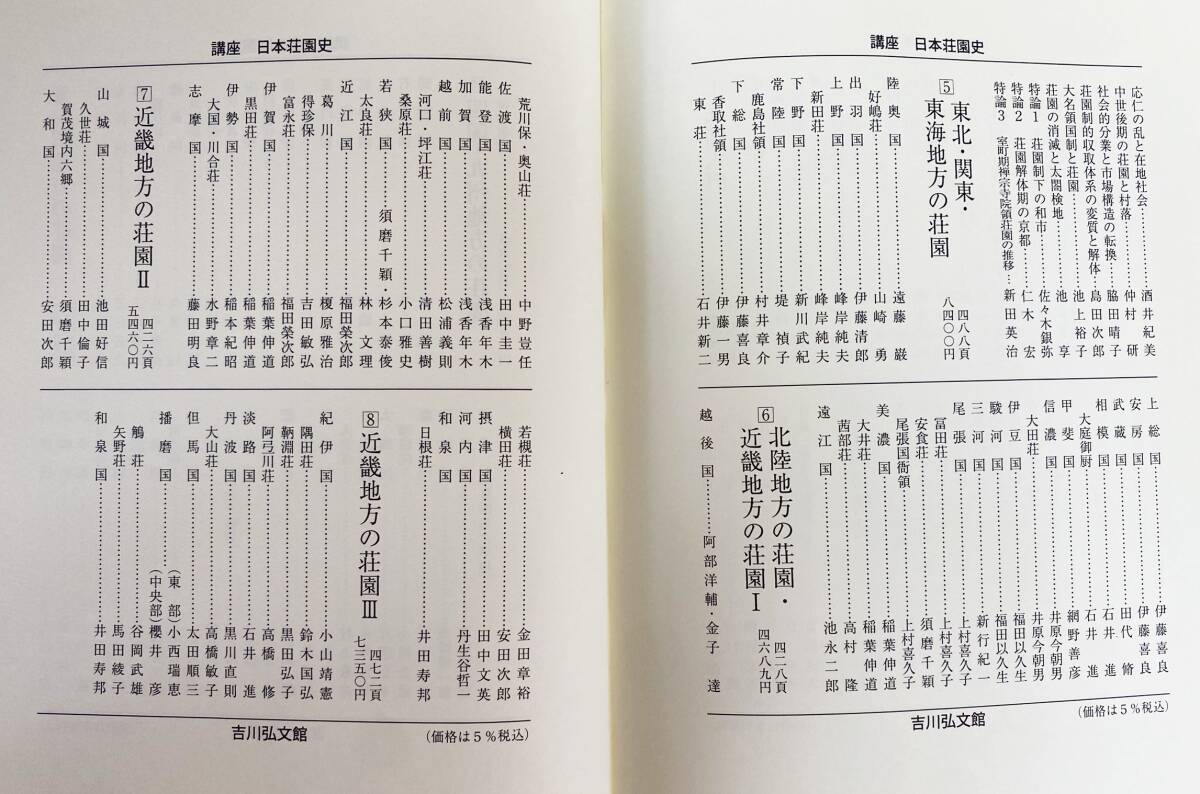 講座　日本荘園史
応仁の乱と在地社会……………酒井紀美
中世後期の荘園と村落……………仲村　研
社会的分業と市場構造の転換……………脇田晴子
荘園制的収取体系の変質と解体……………島田次郎
大名領国制と荘園……………池上裕子
荘園の消滅と太閤検地……………池　享
特論1　荘園制下の和市……………佐々木銀弥
特論2　荘園解体期の京都……………仁木　宏
特論3　室町期禅宗寺院領荘園の推移……………新田英治
5 東北・関東・東海地方の荘園　四八八頁　八四〇〇円
陸奥国……………遠藤　巌
好嶋荘……………山崎　勇
出羽国……………伊藤清郎
上野国……………峰岸純夫
新田荘……………峰岸純夫
下野国……………新川武紀
常陸国……………堤　禎子
鹿島社領……………村井章介
下総国……………伊藤喜良
香取社領……………伊藤一男
東荘……………石井新二
上総国……………伊藤喜良
安房国……………伊藤喜良
武蔵国……………田代　脩
相模国……………石井　進
大庭御厨……………石井　進
甲斐国……………網野善彦
信濃国……………井原今朝男
大田荘……………井原今朝男
伊豆国……………福田以久生
駿河国……………福田以久生
三河国……………新行紀一
尾張国……………上村喜久子
冨田荘……………上村喜久子
安食荘……………須磨千穎
尾張国衙領……………上村喜久子
美濃国……………稲葉伸道
大井荘……………稲葉伸道
茜部荘……………高村　隆
遠江国……………池永二郎
6 北陸地方の荘園・近畿地方の荘園Ⅰ　四二八頁　四六八九円
越後国……………阿部洋輔・金子　達
吉川弘文館
（価格は5％税込）
講座　日本荘園史
荒川保・奥山荘……………中野豈任
佐渡国……………田中圭一
能登国……………浅香年木
加賀国……………浅香年木
越前国……………松浦義則
河口・坪江荘……………清田善樹
桑原荘……………小口雅史
若狭国……………須磨千穎・杉本泰俊
太良荘……………林　文理
近江国……………福田榮次郎
葛川……………榎原雅治
得珍保……………吉田敏弘
富永荘……………福田榮次郎
伊賀国……………稲葉伸道
黒田荘……………稲葉伸道
伊勢国……………稲本紀昭
大国・川合荘……………水野章二
志摩国……………藤田明良
7 近畿地方の荘園Ⅱ　四二六頁　五四六〇円
山城国……………池田好信
久世荘……………田中倫子
賀茂境内六郷……………須磨千穎
大和国……………安田次郎
若槻荘……………金田章裕
横田荘……………安田次郎
摂津国……………田中文英
河内国……………丹生谷哲一
和泉国
日根荘……………井田寿邦
8 近畿地方の荘園Ⅲ　四七二頁　七三五〇円
紀伊国……………小山靖憲
隅田荘……………鈴木国弘
鞆淵荘……………黒田弘子
阿弖川荘……………高橋　修
淡路国……………石井　進
丹波国……………黒川直則
大山荘……………高橋敏子
但馬国……………太田順三
播磨国……………（東　部）小西瑞恵
（中央部）櫻井　彦
鵤荘……………谷岡武雄
矢野荘……………馬田綾子
和泉国……………井田寿邦
吉川弘文館
（価格は5％税込）